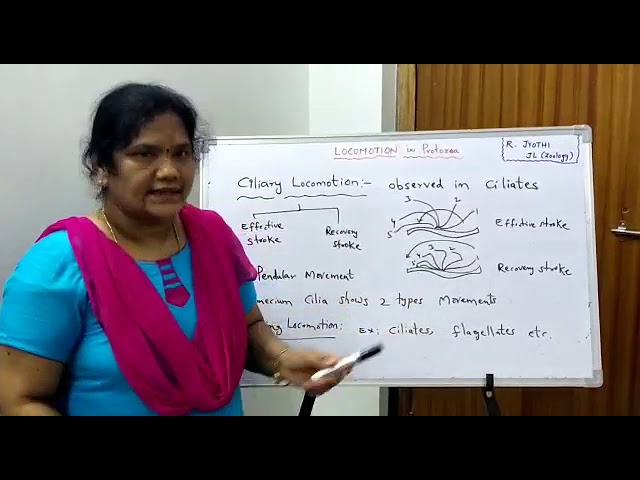 LOCOMOTION in Protozoa
R. JYOTHI
JL (Zoology)
Ciliary Locomotion:- observed in Ciliates
Effective stroke
Recovery stroke
3 2 1 4 5
Effective stroke
3 2 1 4 5
Recovery stroke
Pendular Movement
mecium Cilia shows 2 types Movements
ing Locomotion: Ex: Ciliates, flagellates etc.